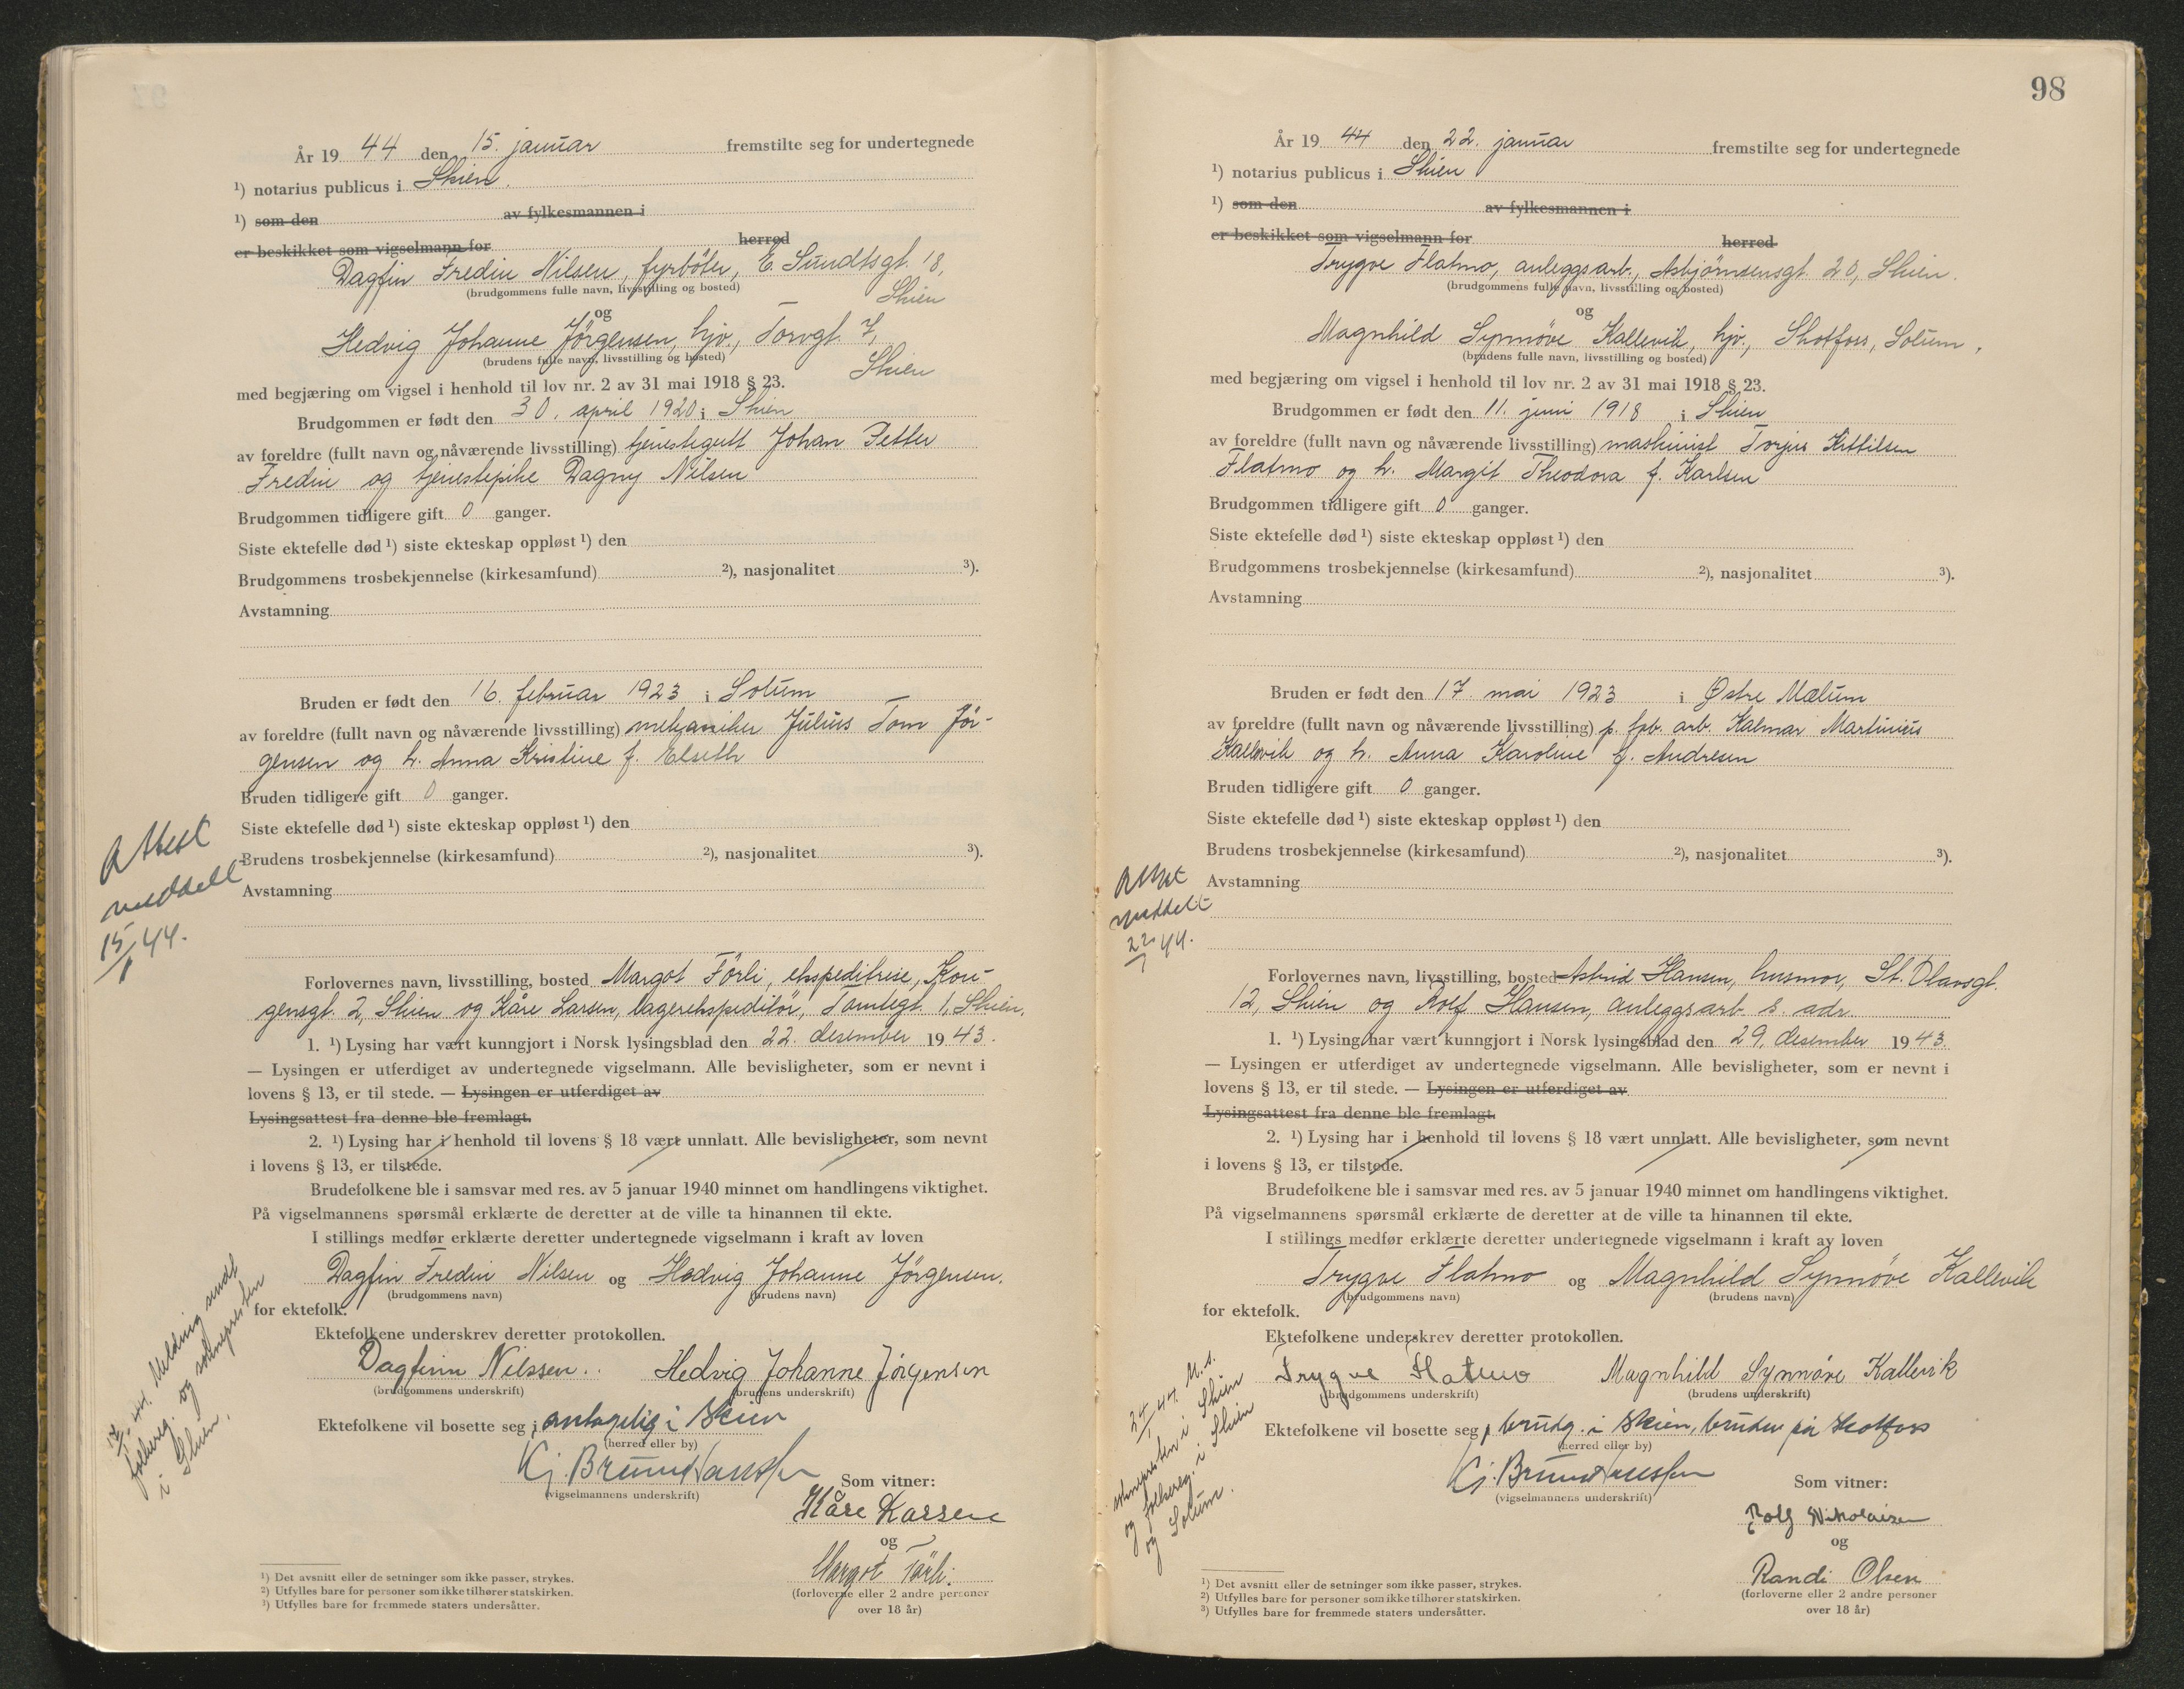 År 19 44 den 15. januar fremstilte seg for undertegnede
¹) notarius publicus i Skien.
¹) som den av fylkesmannen i
er beskikket som vigselmann for herred
Dagfin Fredin Nilsen, fyrböter, E. Sundtsgt. 18,
(brudgommens fulle navn, livsstilling og bosted)
Skien
og
Hedvig Johanne Jörgensen, hjv., Torvgt. 7,
(brudens fulle navn, livsstilling og bosted)
Skien
med begjæring om vigsel i henhold til lov nr. 2 av 31 mai 1918 § 23.
Brudgommen er født den 30. april 1920 i Skien
av foreldre (fullt navn og nåværende livsstilling) tjenestegutt Johan Petter
Fredin og tjenestepike Dagny Nilsen
Brudgommen tidligere gift 0 ganger.
Siste ektefelle død ¹) siste ekteskap oppløst ¹) den
Brudgommens trosbekjennelse (kirkesamfund) ²), nasjonalitet ³).
Avstamning
Bruden er født den 16. februar 1923 i Solum
av foreldre (fullt navn og nåværende livsstilling) mekaniker Julius Tom Jör-
gensen og h. Anna Kristine f. Elseth
Bruden tidligere gift 0 ganger.
Siste ektefelle død ¹) siste ekteskap oppløst ¹) den
Brudens trosbekjennelse (kirkesamfund) ²), nasjonalitet ³).
Avstamning
Attest
meddelt
15/1 44.
Forlovernes navn, livsstilling, bosted Margot Törli, ekspeditrise, Kon-
gensgt. 2, Skien og Kåre Larsen, lagerekspeditör, Tomtegt. 1, Skien.
1. ¹) Lysing har vært kunngjort i Norsk lysingsblad den 22. desember 19 43.
— Lysingen er utferdiget av undertegnede vigselmann. Alle bevisligheter, som er nevnt i
lovens § 13, er til stede. — Lysingen er utferdiget av
Lysingsattest fra denne ble fremlagt.
2. ¹) Lysing har i henhold til lovens § 18 vært unnlatt. Alle bevisligheter, som nevnt
i lovens § 13, er tilstede.
Brudefolkene ble i samsvar med res. av 5 januar 1940 minnet om handlingens viktighet.
På vigselmannens spørsmål erklærte de deretter at de ville ta hinannen til ekte.
I stillings medfør erklærte deretter undertegnede vigselmann i kraft av loven
Dagfin Fredin Nilsen og Hedvig Johanne Jörgensen.
(brudgommens navn) (brudens navn)
for ektefolk.
Ektefolkene underskrev deretter protokollen.
Dagfinn Nilssen. Hedvig Johanne Jörgensen
(brudgommens underskrift) (brudens underskrift)
Ektefolkene vil bosette seg i antagelig i Skien
(herred eller by)
Kj. Brun Hanssen
(vigselmannens underskrift)
Som vitner:
Kåre Larsen
og
Margot Törli.
(forloverne eller 2 andre personer
over 18 år)
Melding sendt
folkereg. og soknepresten
i Skien.
¹) Det avsnitt eller de setninger som ikke passer, strykes.
²) Utfylles bare for personer som ikke tilhører statskirken.
³) Utfylles bare for fremmede staters undersåtter.
98
År 19 44 den 22. januar fremstilte seg for undertegnede
¹) notarius publicus i Skien
¹) som den av fylkesmannen i
er beskikket som vigselmann for herred
Trygve Flatmo, anleggsarb., Asbjörnsensgt. 20, Skien.
(brudgommens fulle navn, livsstilling og bosted)
og
Magnhild Synnøve Kallevik, hjv., Skotfoss, Solum.
(brudens fulle navn, livsstilling og bosted)
med begjæring om vigsel i henhold til lov nr. 2 av 31 mai 1918 § 23.
Brudgommen er født den 11. juni 1918 i Skien
av foreldre (fullt navn og nåværende livsstilling) maskinist Torjus Kittilsen
Flatmo og h. Margit Theodora f. Karlsen
Brudgommen tidligere gift 0 ganger.
Siste ektefelle død ¹) siste ekteskap oppløst ¹) den
Brudgommens trosbekjennelse (kirkesamfund) ²), nasjonalitet ³).
Avstamning
Bruden er født den 17. mai 1923 i Østre Mælum
av foreldre (fullt navn og nåværende livsstilling) p. fab. arb. Kalmar Martinius
Kallevik og h. Anna Karoline f. Andresen
Bruden tidligere gift 0 ganger.
Siste ektefelle død ¹) siste ekteskap oppløst ¹) den
Brudens trosbekjennelse (kirkesamfund) ²), nasjonalitet ³).
Avstamning
Attest
meddelt
22/1 44.
Forlovernes navn, livsstilling, bosted Astrid Hansen, husmor, St. Olavsgt.
12, Skien og Rolf Hansen, anleggsarb. s. adr.
1. ¹) Lysing har vært kunngjort i Norsk lysingsblad den 29. desember 19 43.
— Lysingen er utferdiget av undertegnede vigselmann. Alle bevisligheter, som er nevnt i
lovens § 13, er til stede. — Lysingen er utferdiget av
Lysingsattest fra denne ble fremlagt.
2. ¹) Lysing har i henhold til lovens § 18 vært unnlatt. Alle bevisligheter, som nevnt
i lovens § 13, er tilstede.
Brudefolkene ble i samsvar med res. av 5 januar 1940 minnet om handlingens viktighet.
På vigselmannens spørsmål erklærte de deretter at de ville ta hinannen til ekte.
I stillings medfør erklærte deretter undertegnede vigselmann i kraft av loven
Trygve Flatmo og Magnhild Synnøve Kallevik
(brudgommens navn) (brudens navn)
for ektefolk.
Ektefolkene underskrev deretter protokollen.
Trygve Flatmo Magnhild Synnøve Kallevik
(brudgommens underskrift) (brudens underskrift)
Ektefolkene vil bosette seg i brudg. i Skien, bruden på Skotfoss
(herred eller by)
Kj. Brun Hanssen
(vigselmannens underskrift)
Som vitner:
Rolf Nikolaisen
og
Randi Olsen
(forloverne eller 2 andre personer
over 18 år)
24/1 44 M. s.
soknepresten i Skien
og folkereg. i Skien
og Solum.
¹) Det avsnitt eller de setninger som ikke passer, strykes.
²) Utfylles bare for personer som ikke tilhører statskirken.
³) Utfylles bare for fremmede staters undersåtter.